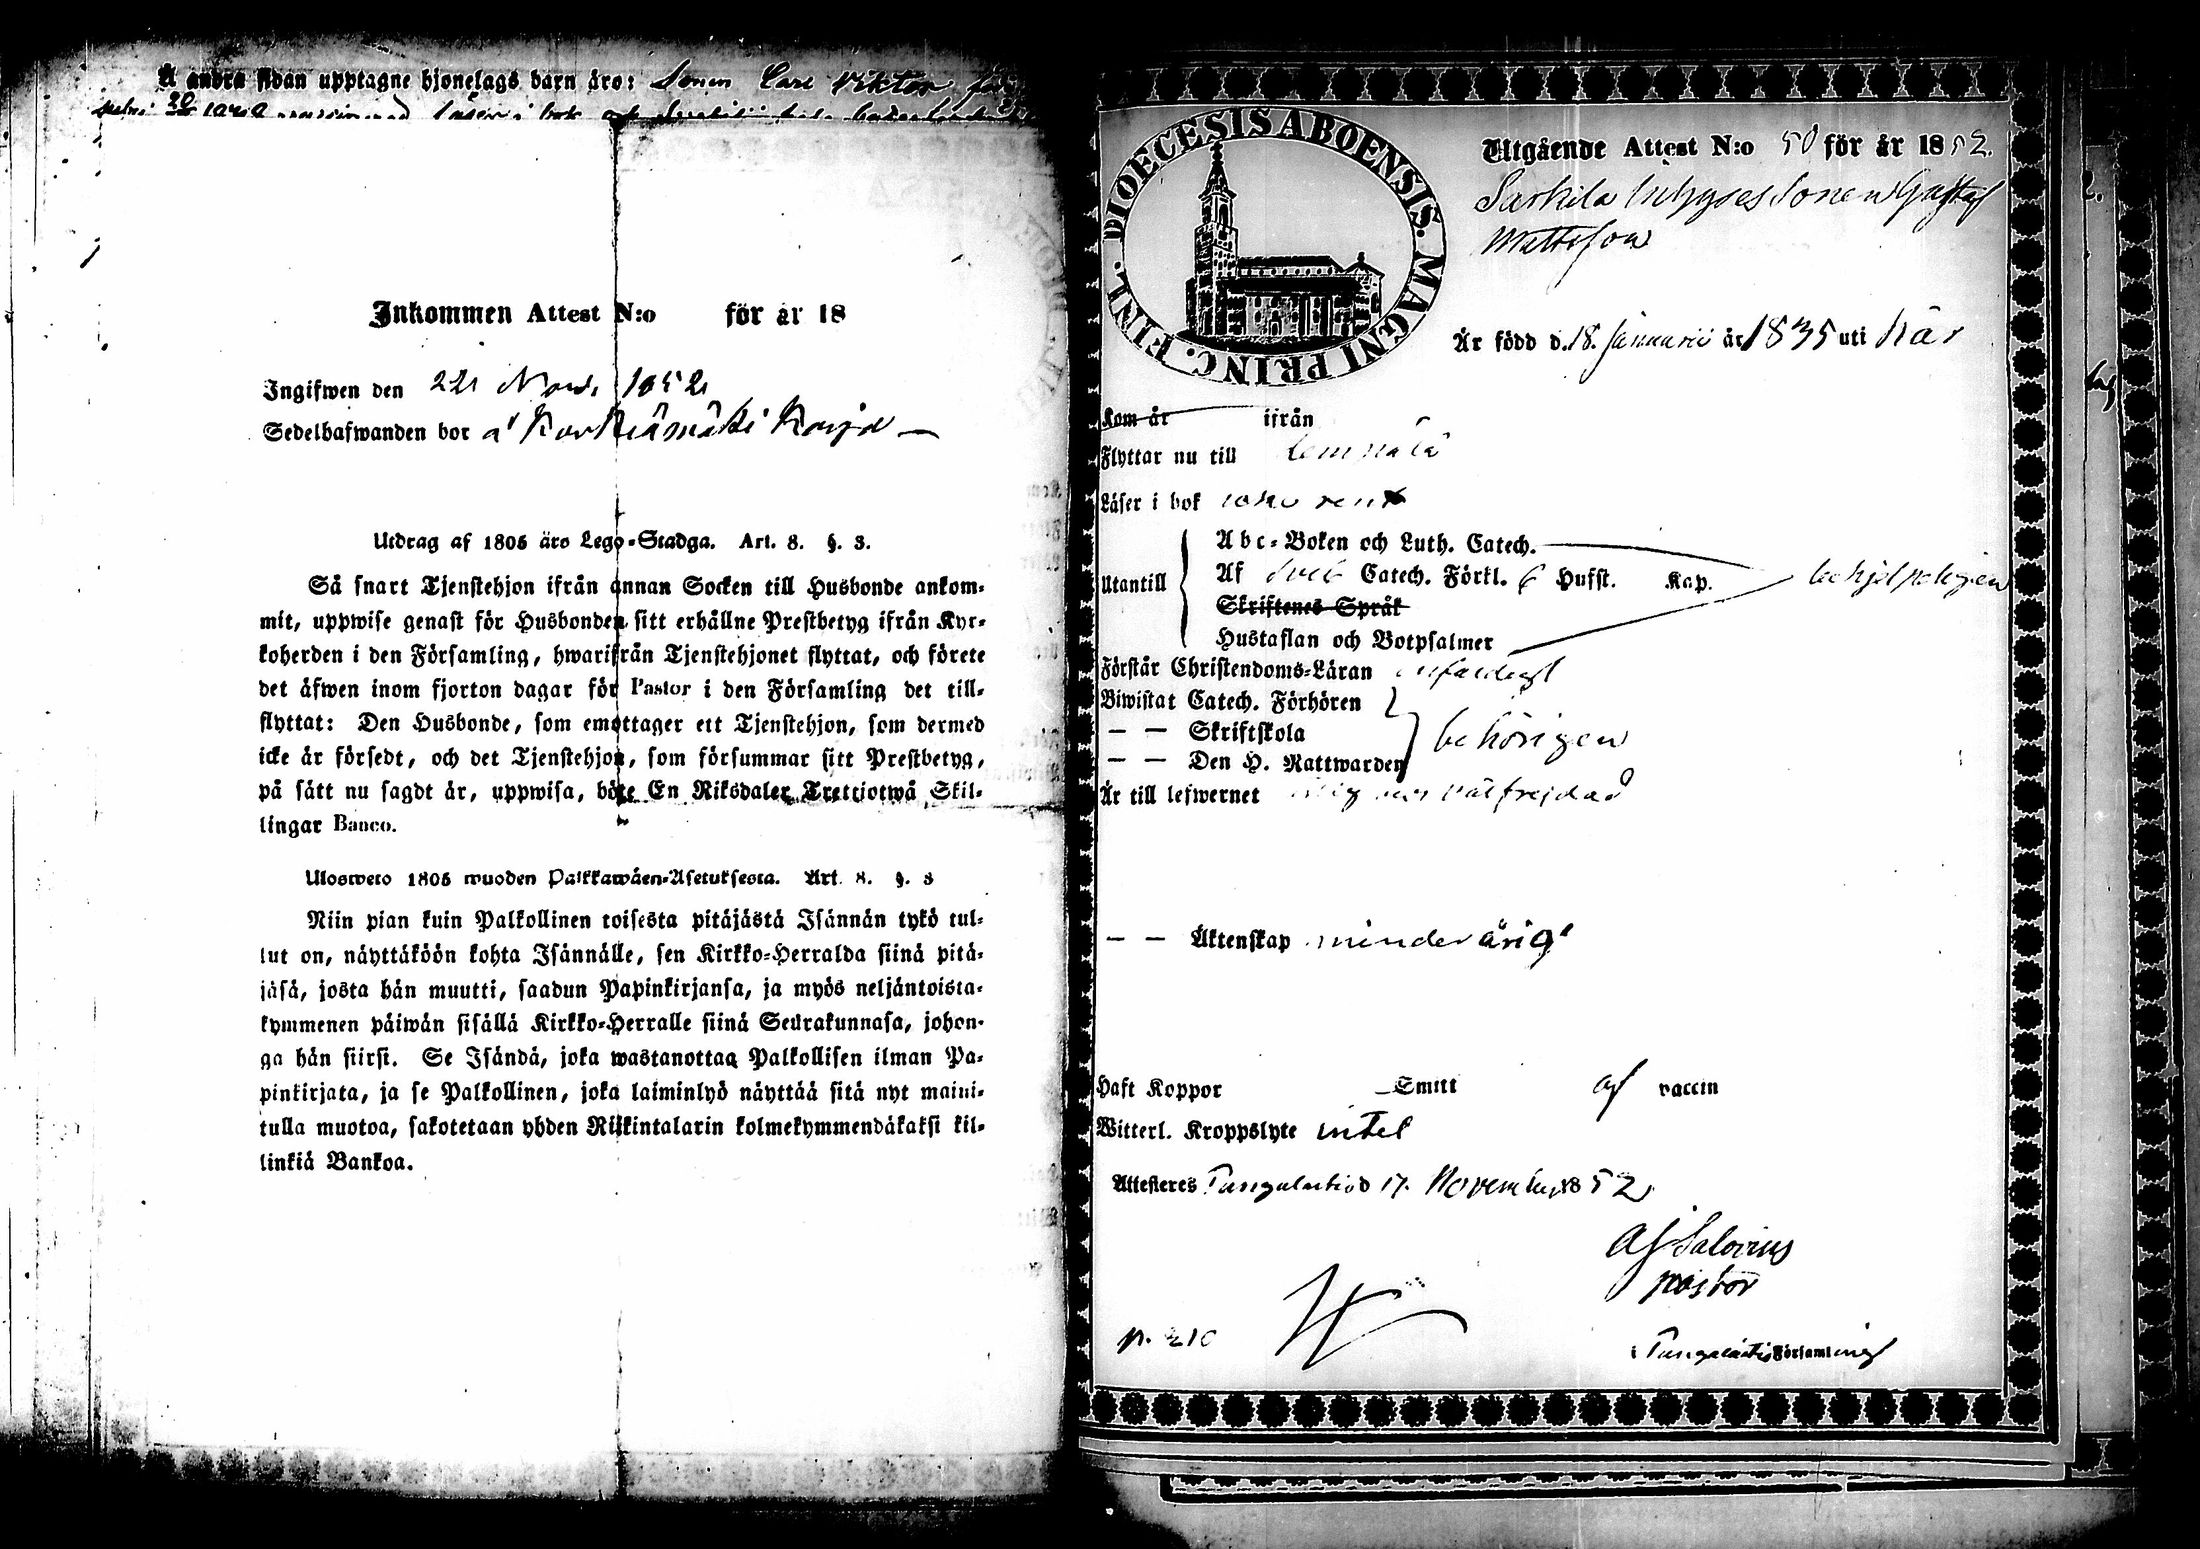 Å andra sidan upptagne hjonelags barn äro: Sonen Carl Viktor
Inkommen Attest N:o för år 18
Ingifwen den 22 Nov. 1852
Sedelhafwanden bor å Korkiamäki
Utdrag af 1805 års Lego-Stadga. Art. 8. §. 3.
Så snart Tjenstehjon ifrån annan Socken till Husbonde ankom-
mit, uppwise genast för Husbonden sitt erhållne Prestbetyg ifrån Kyr-
koherden i den Församling, hwarifrån Tjenstehjonet flyttat, och förete
det äfwen inom fjorton dagar för Pastor i den Församling det till-
flyttat: Den Husbonde, som emottager ett Tjenstehjon, som dermed
icke är försedt, och det Tjenstehjon, som försummar sitt Prestbetyg,
på sätt nu sagdt är, uppwisa, böte En Riksdaler Trettiotwå Skil-
lingar Banco.
Ulosweto 1805 wuoden Palkkawäen-Asetuksesta. Art. 8. §. 3
Niin pian kuin Palkollinen toisesta pitäjästä Isännän tykö tul-
lut on, näyttäköön kohta Isännälle, sen Kirkko-Herralda siinä pitä-
jäsä, josta hän muutti, saadun Papinkirjansa, ja myös neljäntoista-
kymmenen päiwän sisällä Kirkko-Herralle siinä Seurakunnasa, johon-
ga hän siirsi. Se Isändä, joka wastanottaa Palkollisen ilman Pa-
pinkirjata, ja se Palkollinen, joka laiminlyö näyttää sitä nyt maini-
tulla muotoa, sakotetaan yhden Riikintalarin kolmekymmendäkaksi kil-
linkiä Bankoa.
DIOECESIS ABOENSIS. MAGNI PRINC. FINL.
Utgående Attest N:o 50 för år 1852.
Sarkila Inhyses Sonen Gustaf
Mattsson
Är född d. 18. Januarii år 1835 uti här
Kom år ifrån
Flyttar nu till
Läser i bok rent
Utantill
Abc-Boken och Luth. Catech.
Af Sveb Catech. Förkl. 6 Hufst. Kap. behjelpeligen
Skriftenes Språk
Hustaflan och Botpsalmer
Förstår Christendoms-Läran enfaldigt
Biwistat Catech. Förhören
— — Skriftskola behörigen
— — Den H. Nattwarden
Är till lefwernet välfrejdad
— — Äktenskap minderårig
Haft Koppor Smitt af vaccin
Witterl. Kroppslyte intet
Attesteres Pungalaitio d 17. November 1852
A J Salovius
pastor
p. 210
i Pungalaitio Församling